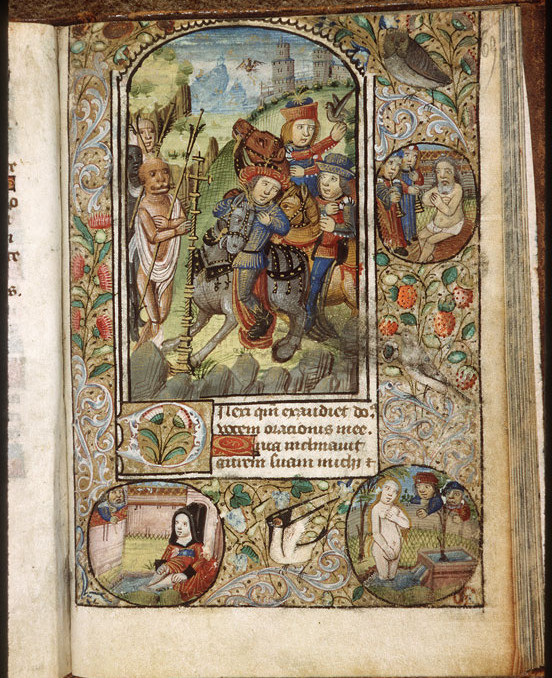 Dilexi qm exaudiet do:
vocem orationis mee.
Quia inclinauit
aurem suam michi